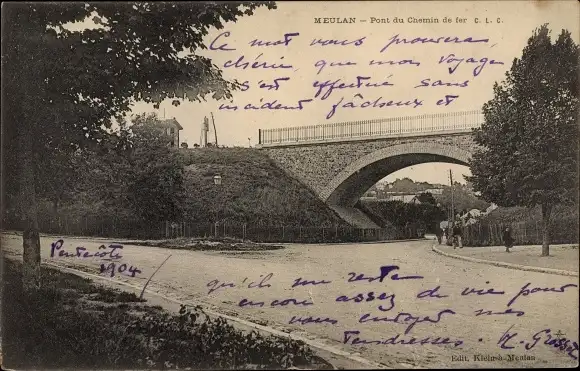 MEULAN — Pont du Chemin de fer C. L. C.
Ce mot vous prouvera,
chérie, que mon voyage
s'est effectué sans
incident fâcheux et
Pentecôte
1904
qu'il me reste
encore assez de vie pour
vous envoyer mes
tendresses.
Edit. Klein-à-Meulan